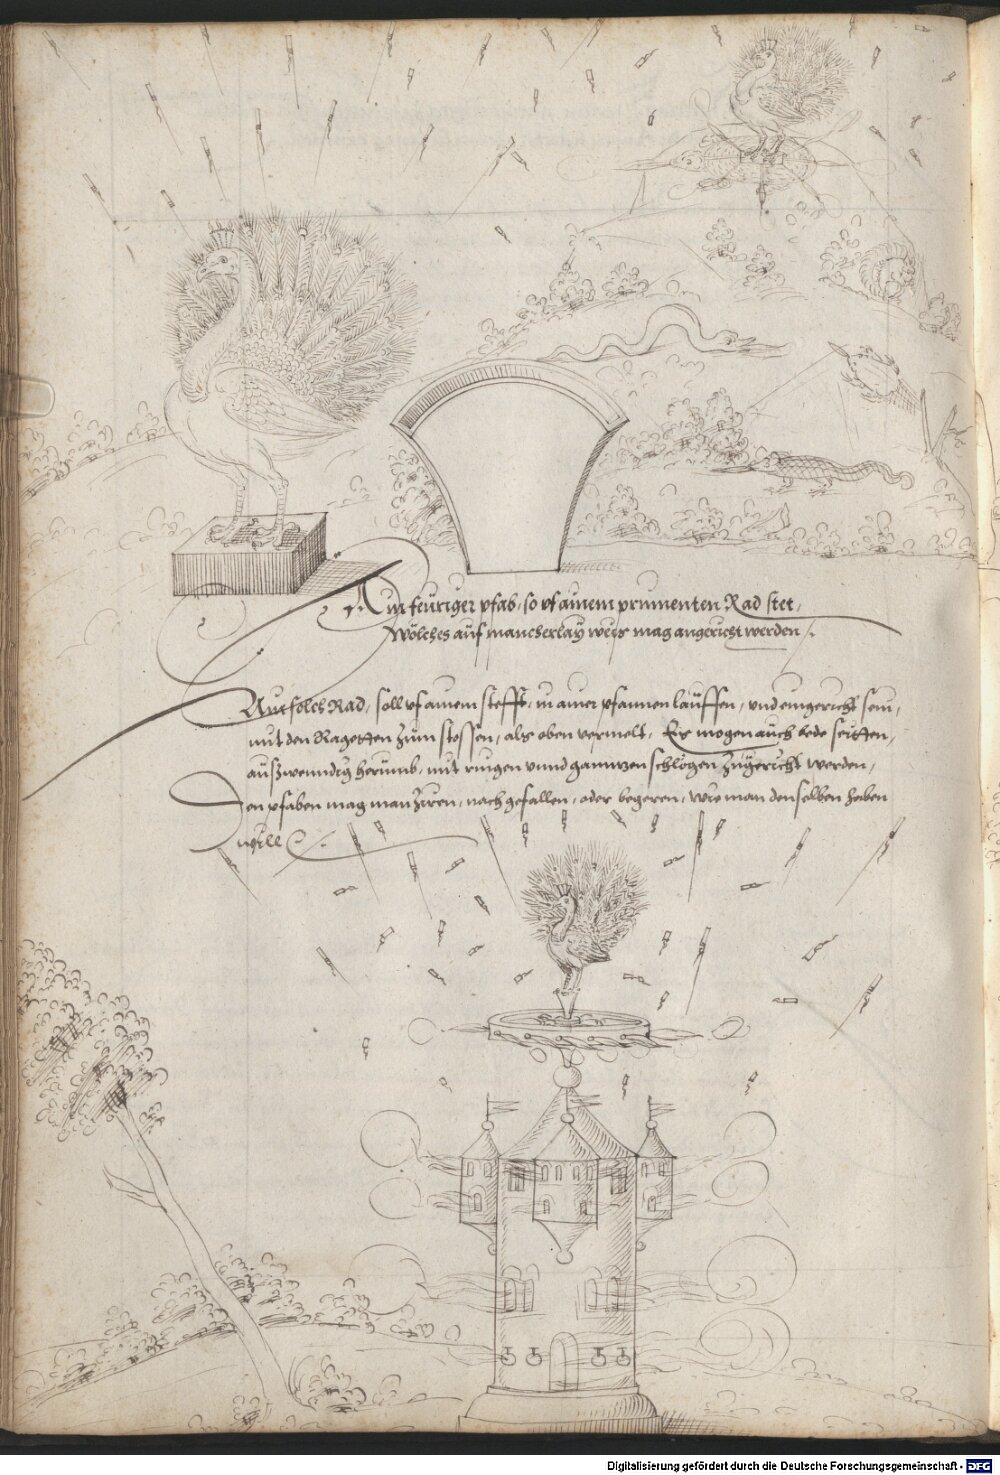 Ain feüriger pfab, so vf ainem prinnenten Rad stet,
Wölches auf mancherlaÿ weis mag angericht werden.
Ain solch Rad, soll vf ainem stefft, in ainer pfannen läuffen, vnd eingericht sein,
mit den Ragetten zum stossen, als oben vermelt, Es mogen auch bede seitten,
außwenndig herumb, mit ringen vnnd gannzen schlögen zugericht werden,
Den pfaben mag man ziren, nach gefallen, oder begeren, wie man denselben haben
will
Digitalisierung gefördert durch die Deutsche Forschungsgemeinschaft - DFG